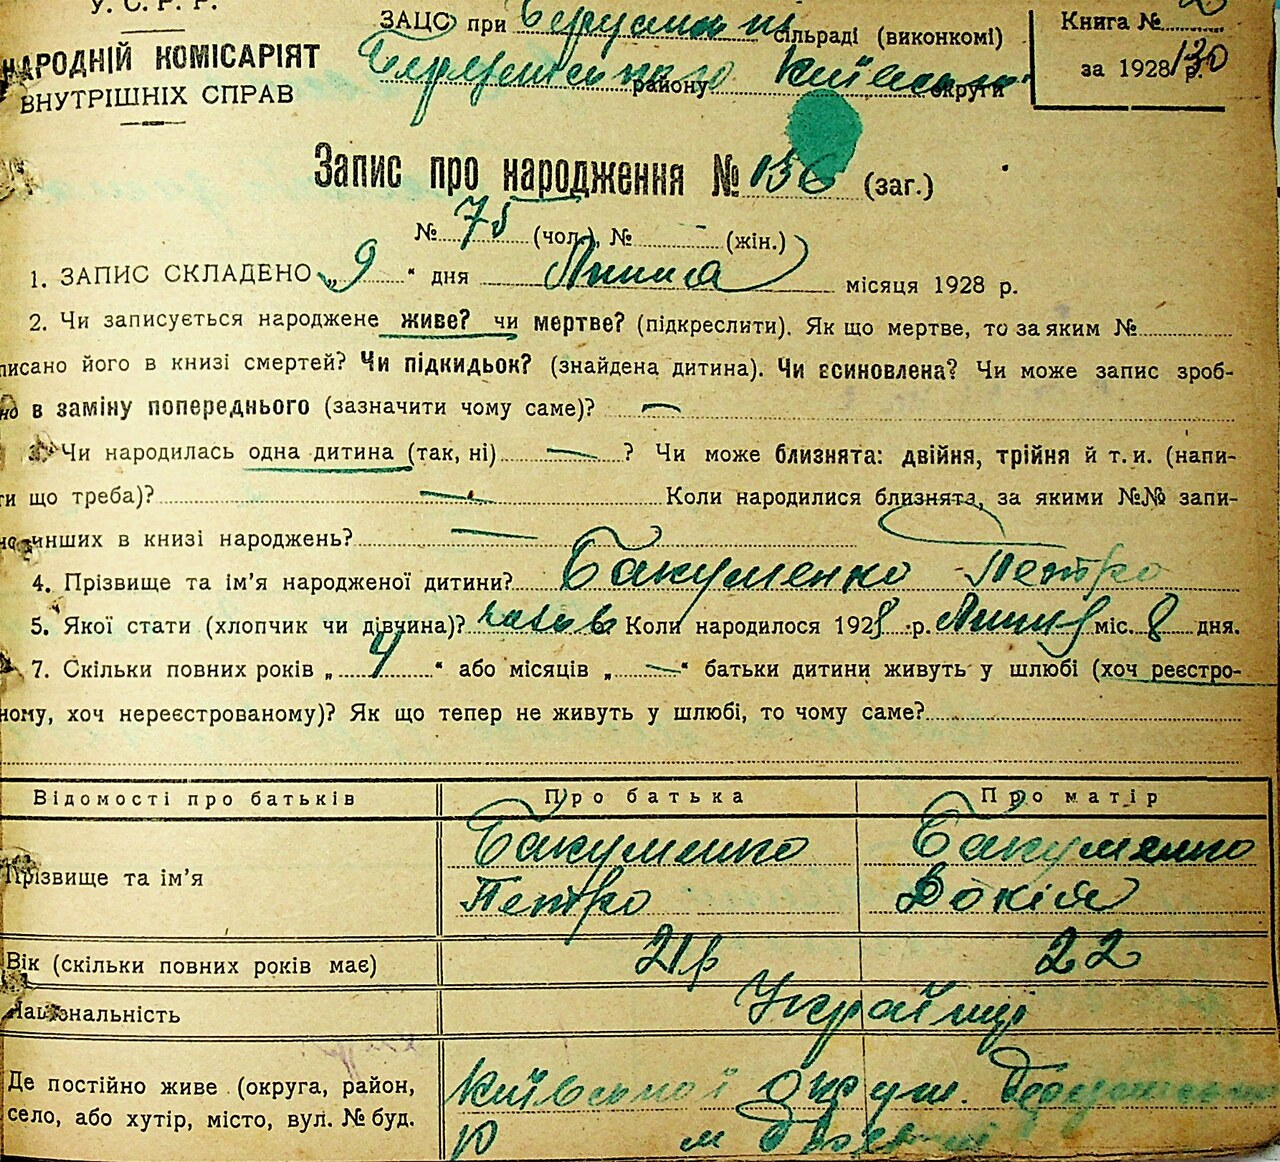 У. С. Р. Р.
НАРОДНІЙ КОМІСАРІЯТ
ВНУТРІШНІХ СПРАВ
ЗАЦС при сільраді (виконкомі)
району округи
Книга № 2
за 1928 р. 130
Запис про народження № 156 (заг.)
№ 75 (чол.), № – (жін.)
1. ЗАПИС СКЛАДЕНО „ 9 “ дня Липня місяця 1928 р.
2. Чи записується народжене живе? чи мертве? (підкреслити). Як що мертве, то за яким №
писано його в книзі смертей? Чи підкидьок? (знайдена дитина). Чи всиновлена? Чи може запис зроб-
но в заміну попереднього (зазначити чому саме)? —
3. Чи народилась одна дитина (так, ні) — ? Чи може близнята: двійня, трійня й т. и. (напи-
ти що треба)? — Коли народилися близнята, за якими №№ запи-
инших в книзі народжень? —
4. Прізвище та ім’я народженої дитини? Бакуменко Петро
5. Якої стати (хлопчик чи дівчина)? Коли народилося 1928 р. міс. 8 дня.
7. Скільки повних років „ 4 “ або місяців „ — “ батьки дитини живуть у шлюбі (хоч реєстро-
ному, хоч нереєстрованому)? Як що тепер не живуть у шлюбі, то чому саме?
Відомості про батьків Про батька Про матір
Прізвище та ім’я Бакуменко Петро Бакуменко Докія
Вік (скільки повних років має) 21 р 22
Національність Українці
Де постійно живе (округа, район, Київської округ.
село, або хутір, місто, вул. № буд. р м